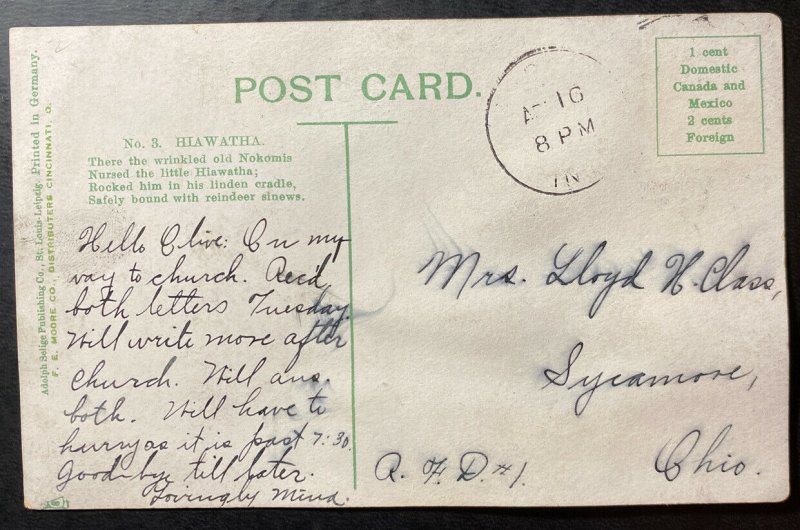 POST CARD.
1 cent
Domestic
Canada and
Mexico
2 cents
Foreign
16
8 PM
IN
No. 3. HIAWATHA.
There the wrinkled old Nokomis
Nursed the little Hiawatha;
Rocked him in his linden cradle,
Safely bound with reindeer sinews.
Adolph Selige Publishing Co., St. Louis-Leipzig. Printed in Germany.
F. E. MOORE CO. DISTRIBUTERS CINCINNATI, O.
Hello Olive: On my
way to church. Rec'd
both letters Tuesday.
Will write more after
church. Will ans.
both. Will have to
hurry as it is past 7:30.
Good-bye till later.
Lovingly Mina.
Mrs. Lloyd H. Class,
Sycamore,
Ohio.
R. F. D. #1.